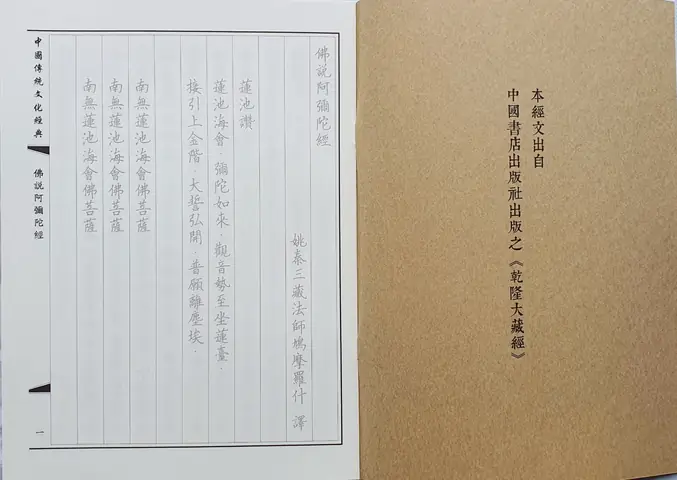 本經文出自
中國書店出版社出版之《乾隆大藏經》
佛說阿彌陀經
姚秦三藏法師鳩摩羅什 譯
蓮池讚
蓮池海會．彌陀如來．觀音勢至坐蓮臺．
接引上金階．大誓弘開．普願離塵埃．
南無蓮池海會佛菩薩
南無蓮池海會佛菩薩
南無蓮池海會佛菩薩
中國傳統文化經典
佛說阿彌陀經
一